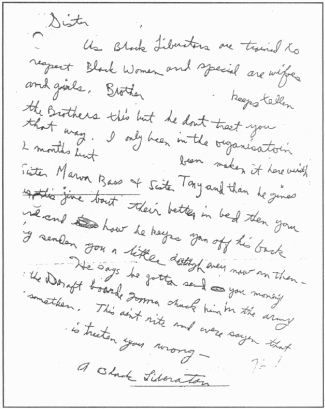 Sister
Us Black Liberators are trained to
respect Black Women and special are wifes
and girls. Brother keeps tellen
the Brothers this but he dont treat you
that way. I only been in the organisation
2 months but been maken it here with
Sister Marva Bass & Sister Tony and than he gives
us this jive bout their better in bed then you
and how he keeps you off his back
by senden you a little dough ever now an then—
He says he gotta send you money
the Draft board gonna chuck him in the army
somethen. This aint rite and were sayen that
is treten you wrong—
A Black Liberator